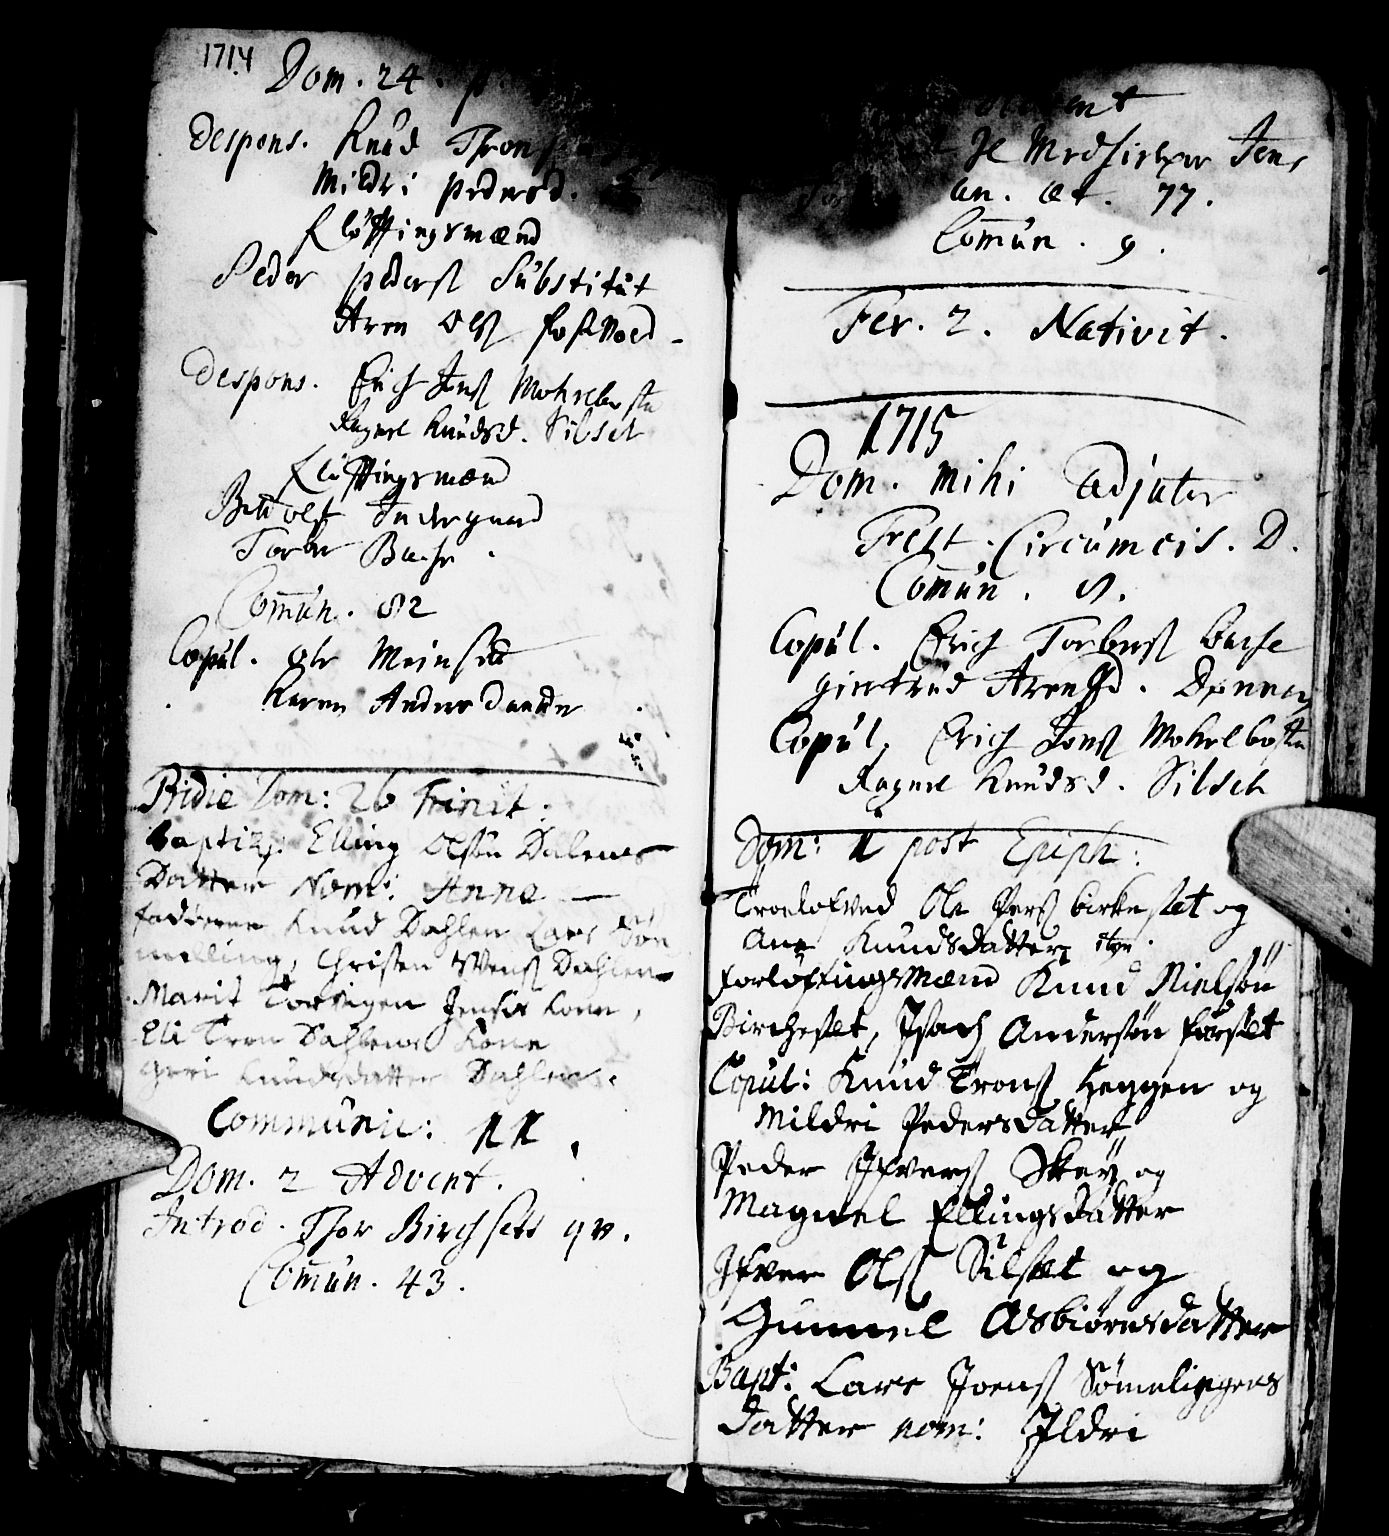 1714
Dom. 24. p
Despons. Knud Trons
Mildri Pedersd.
Kløftingsmænd
Peder Peders. Substitut
Aren Ols.
Despons. Erich Jons. Mohrlbosta
Ragnel Knudsd. Silset
Kløftingsmænd
Indergaard
Torber Barhr.
Com̅un. 82
Copul. Ole Meinset
Karen Anders Daatter
Pridie Dom: 26 Trinit:
Baptiz: Elling Olsøn Dalens
Datter Nom: Anne
fadderne Knud Dahlen Lars Søm
melling, Christen Svens. Dahlen
Marit Torvigen Jenses kone,
Eli Tron Dahlens Kone
Geri Knudsdatter Dahlen.
Communic: 11.
Dom. 2 Advent.
Introd. Thor Birchsets qv.
Com̅un. 43.
Advent
Jens
an. æt. 77.
Com̅un. 9.
Fer. 2. Nativit.
1715
Dom. mihi Adjutor
Fest. Circumcis. D.
Com̅un. 8.
Copul. Erich Torbers. Barhe
Giertrud Arensd.
Copul. Erich Jons. Mohrlbosta
Ragnel Knudsd. Silset
Dom: 1 post Epiph:
Troelofved Ole Pers. Birkeset og
Ane Knudsdatter
forløftingsmænd Knud Nielsøn
Bircheset, Isach Andersøn farset
Copul: Knud Trons. Heggen og
Mildri Pedersdatter
Peder Ifvers. Skey og
Magnel Ellingsdatter
Ifver Ols. Silset og
Gunnel Asbiørnsdatter
Bapt: Lars Joens. Sømelingens
datter nom: Ildri